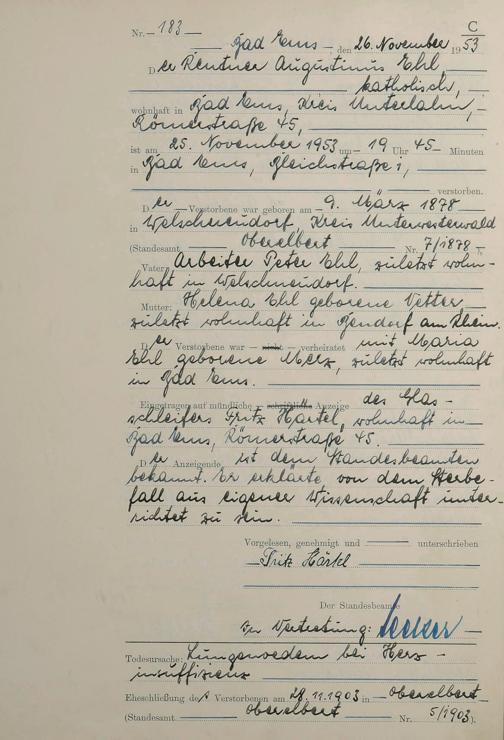 C
Nr. 183
Bad Ems, den 26. November 1953
Der Rentner Augustinus Ehl,
katholisch,
wohnhaft in Bad Ems, Kreis Unterlahn,
Römerstraße 45,
ist am 25. November 1953 um 19 Uhr 45 Minuten
in Bad Ems, Bleichstraße 1,
verstorben.
Der Verstorbene war geboren am 9. März 1878
in Welschneudorf, Kreis Unterwesterwald
(Standesamt Oberelbert Nr. 7/1878
Vater: Arbeiter Peter Ehl, zuletzt wohn-
haft in Welschneudorf.
Mutter: Helena Ehl geborene Vetter
zuletzt wohnhaft in Bendorf am Rhein.
Der Verstorbene war nicht verheiratet mit Maria
Ehl geborene Merz, zuletzt wohnhaft
in Bad Ems.
Eingetragen auf mündliche schriftliche Anzeige des Glas-
schleifers Fritz Härtel, wohnhaft in
Bad Ems, Römerstraße 45.
Der Anzeigende ist dem Standesbeamten
bekannt. Er erklärte, von dem Sterbe-
fall aus eigener Wissenschaft unter-
richtet zu sein.
Vorgelesen, genehmigt und unterschrieben
Fritz Härtel
Der Standesbeamte
In Vertretung:
Todesursache: Lungenoedem bei Herz-
insuffizienz
Eheschließung des Verstorbenen am 29.11.1903 in Oberelbert
(Standesamt Oberelbert Nr. 5/1903).